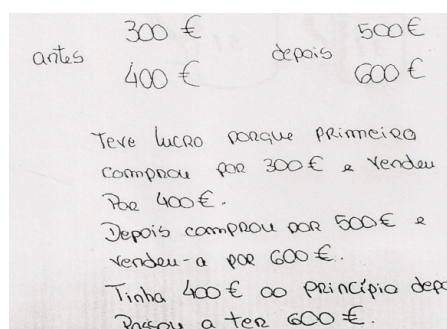 300 € 500 €
antes depois
400 € 600 €
Teve lucro porque primeiro
comprou por 300 € e vendeu
por 400 €.
Depois comprou por 500 € e
vendeu-a por 600 €.
Tinha 400 € ao princípio depo
Passou a ter 600 €.